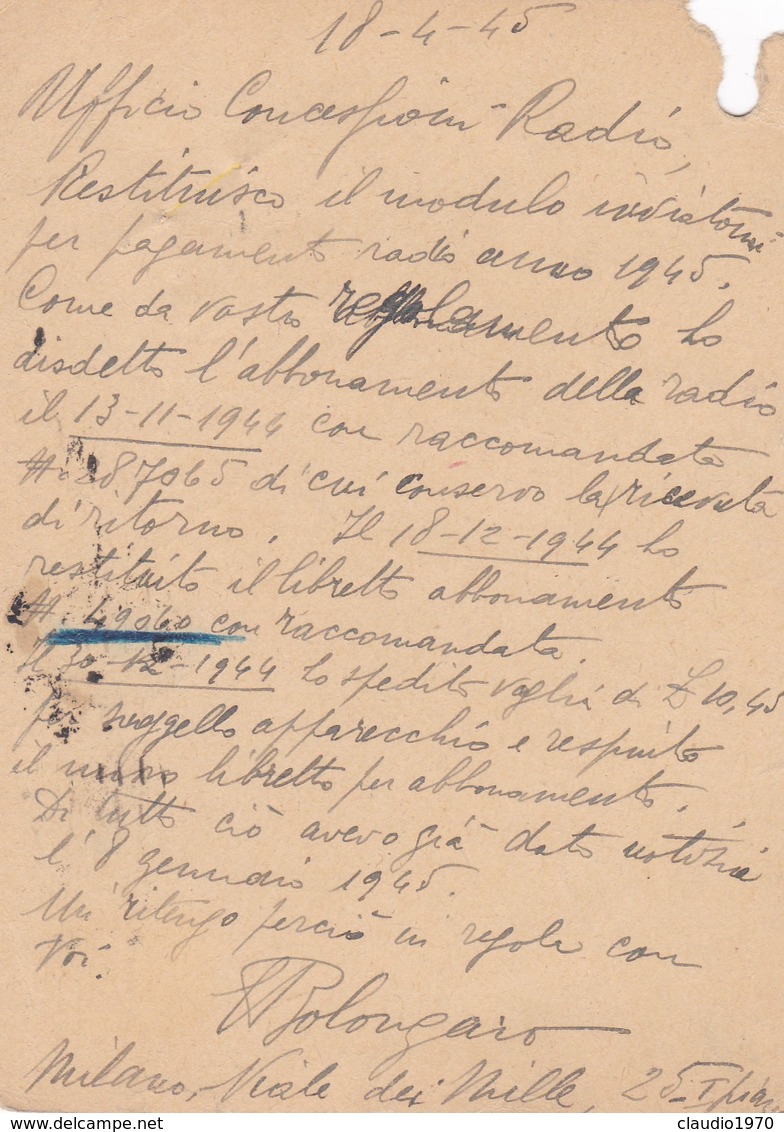 18-4-45
Ufficio Concessioni Radio,
Restituisco il modulo inviatomi
per pagamento radio anno 1945.
Come da vostro regolamento ho
disdetto l'abbonamento della radio
il 13-11-1944 con raccomandata
N. 287065 di cui conservo la ricevuta
di ritorno. Il 18-12-1944 ho
restituito il libretto abbonamento
N. 49060 con raccomandata
Il 30-12-1944 ho spedito vaglia di £ 10,45
per suggello apparecchio e respinto
il nuovo libretto per abbonamento.
Di tutto ciò avevo già dato notizia
l'8 gennaio 1945.
Mi ritengo perciò in regola con
Voi.
Bolongaro
Milano, Viale dei Mille, 25 - I pian
© claudio1970